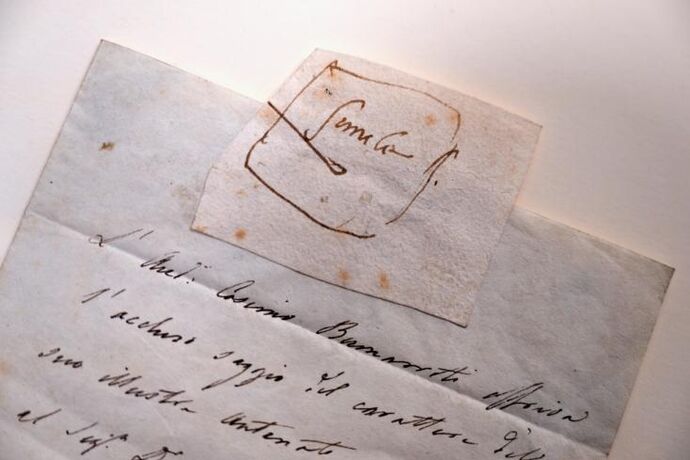 L' Avv. Cosimo Buonarroti offriva
l' accluso saggio del carattere dell
suo illustre antenato
al Sigr. D